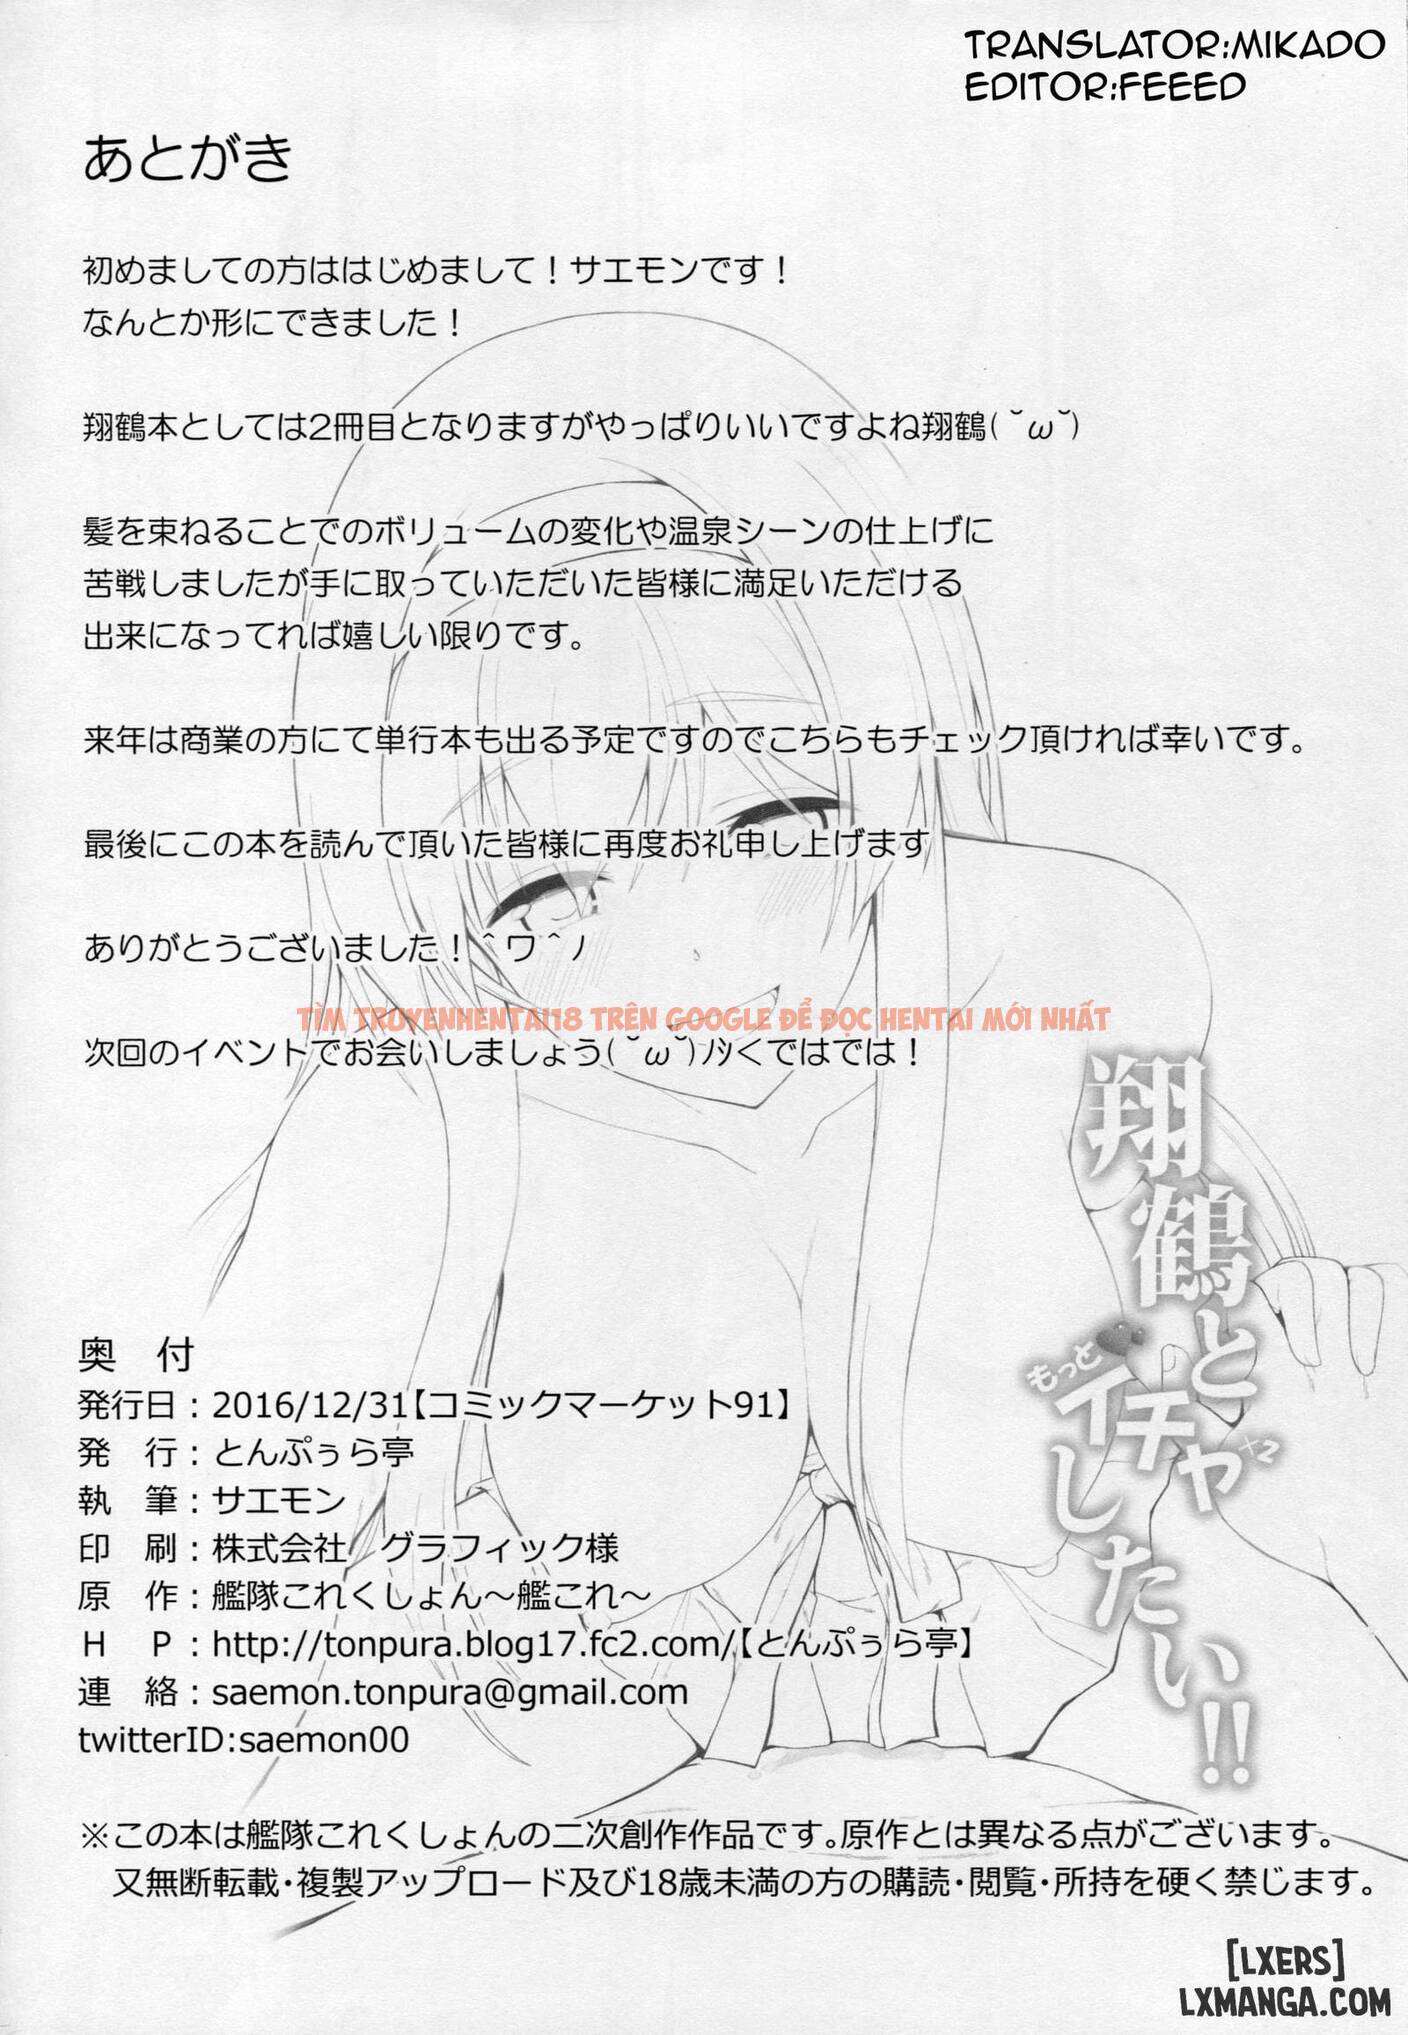 TRANSLATOR:MIKADO
EDITOR:FEEED
あとがき
初めましての方ははじめまして！サエモンです！
なんとか形にできました！
翔鶴本としては2冊目となりますがやっぱりいいですよね翔鶴(˘ω˘)
髪を束ねることでのボリュームの変化や温泉シーンの仕上げに
苦戦しましたが手に取っていただいた皆様に満足いただける
出来になってれば嬉しい限りです。
来年は商業の方にて単行本も出る予定ですのでこちらもチェック頂ければ幸いです。
最後にこの本を読んで頂いた皆様に再度お礼申し上げます
ありがとうございました！＾ワ＾ノ
TÌM TRUYENHENTAI18 TRÊN GOOGLE ĐỂ ĐỌC HENTAI MỚI NHẤT
次回のイベントでお会いしましょう(˘ω˘)ﾉｼくではでは！
翔鶴と
もっと
イチャ+2
したい!!
奥　付
発行日：2016/12/31【コミックマーケット91】
発　行：とんぷぅら亭
執　筆：サエモン
印　刷：株式会社　グラフィック様
原　作：艦隊これくしょん～艦これ～
Ｈ　Ｐ：http://tonpura.blog17.fc2.com/【とんぷぅら亭】
連　絡：saemon.tonpura@gmail.com
twitterID:saemon00
※この本は艦隊これくしょんの二次創作作品です。原作とは異なる点がございます。
又無断転載・複製アップロード及び18歳未満の方の購読・閲覧・所持を硬く禁じます。
[LXERS]
LXMANGA.COM